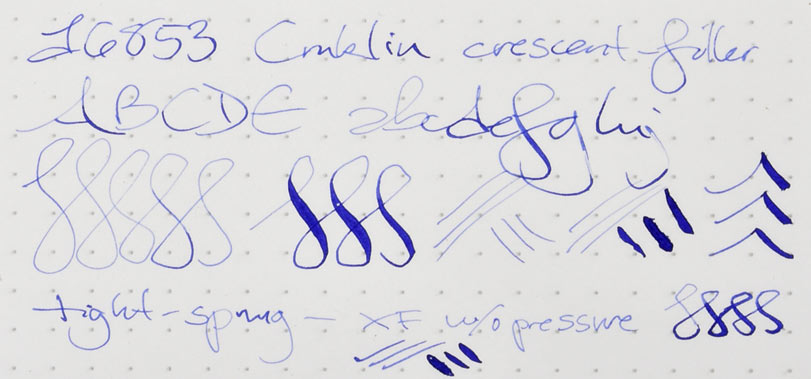 16853 Conklin crescent-filler
ABCDE abcdefghij
tight-sprung - XF w/o pressure